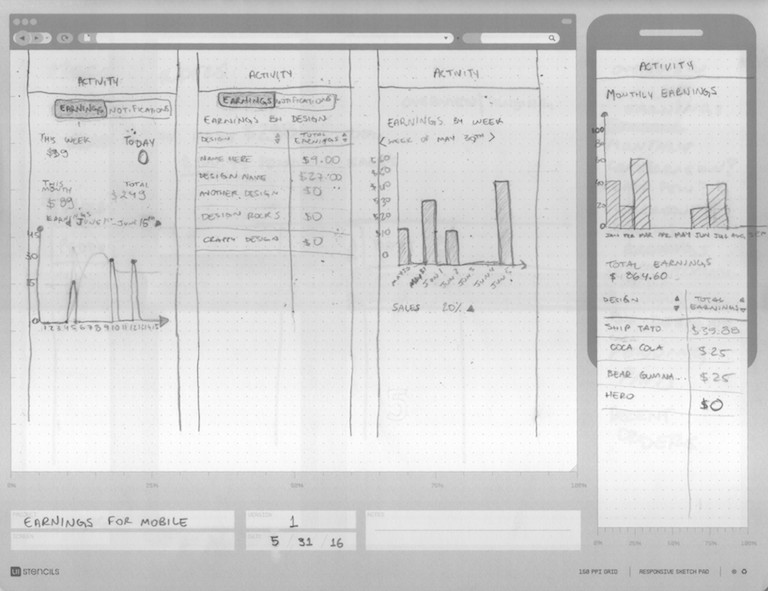 ACTIVITY
EARNINGS NOTIFICATIONS
THIS WEEK
$39
TODAY
0
THIS MONTH
$89
TOTAL
$249
EARNINGS JUNE 1ST JUNE 15TH
45
30
15
0
1 2 3 4 5 6 7 8 9 10 11 12 13 14 15
ACTIVITY
EARNINGS NOTIFICATIONS
EARNINGS BY DESIGN
DESIGN TOTAL EARNINGS
NAME HERE $9.00
DESIGN NAME $27.00
ANOTHER DESIGN $0
DESIGN ROCKS $0
CRAPPY DESIGN $0
ACTIVITY
EARNINGS BY WEEK
< WEEK OF MAY 30TH >
$60
$50
$40
$30
$20
$10
0
MAY 31 JUN 1 JUN 2 JUN 3 JUN 4 JUN 5
SALES 20% ▲
ACTIVITY
MONTHLY EARNINGS
100
80
60
40
20
0
JAN FEB MAR APR MAY JUN JUL AUG
TOTAL EARNINGS
$ 864.60
DESIGN TOTAL EARNINGS
SHIP TATO $39.88
COCA COLA $25
BEAR GUMMA... $25
HERO $0
0% 25% 50% 75% 100%
0% 25% 50% 75% 100%
PROJECT
EARNINGS FOR MOBILE
SCREEN
VERSION
1
DATE
5 / 31 / 16
NOTES
UI STENCILS
150 PPI GRID | RESPONSIVE SKETCH PAD